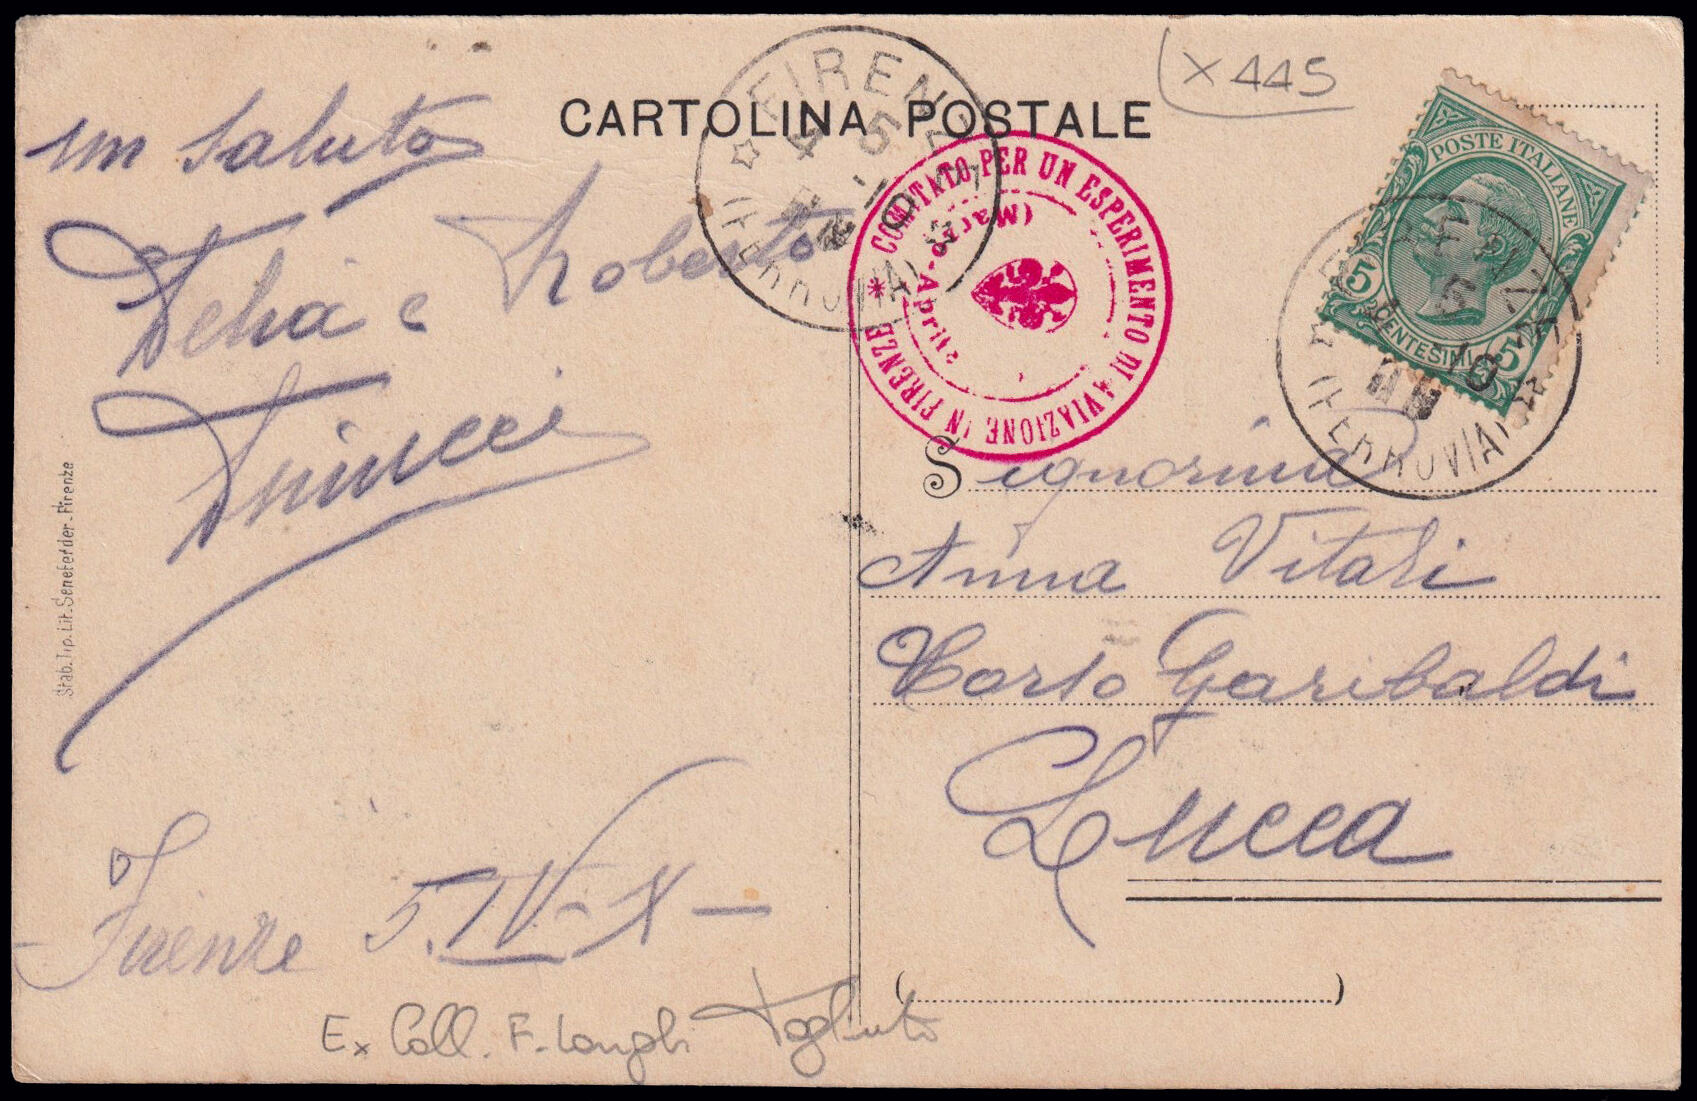 X 445
CARTOLINA POSTALE
un saluto
Delia e Roberto
FIRENZE
5
(FERROVIA)
COMITATO PER UN ESPERIMENTO DI AVIAZIONE IN FIRENZE
(Marzo-Aprile
POSTE ITALIANE
5 CENTESIMI 5
FIRENZE
5
10
(FERROVIA)
Signorina
Anna Vitali
Corso Garibaldi
Lucca
Firenze 5.IV-X-
Stab. Tip. Lit. Senefelder - Firenze
Ex Coll. F. Longhi